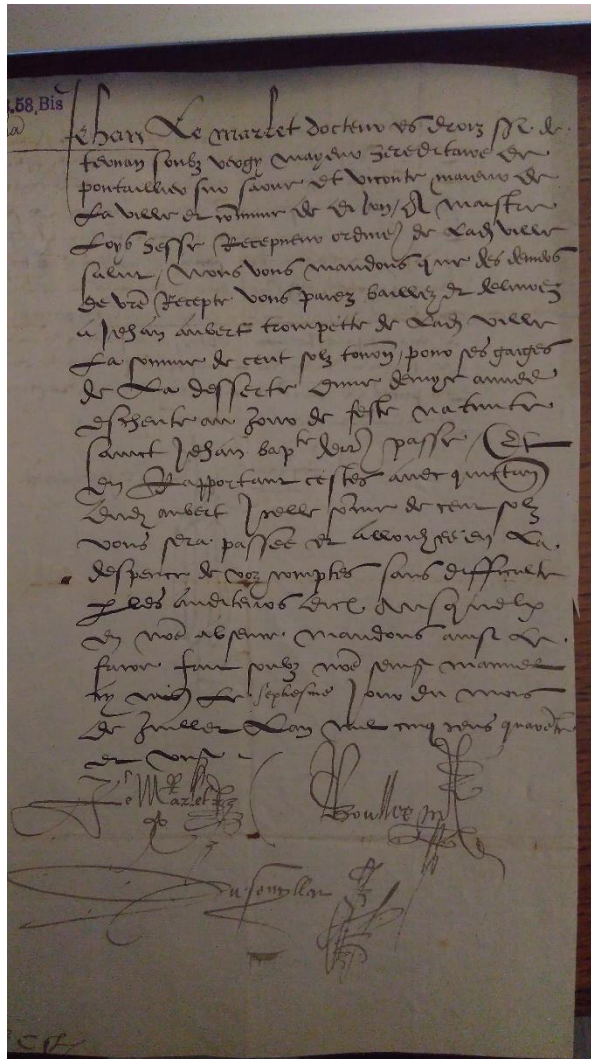 .58,Bis
Jehan Le marlet docteur es droiz sgr de
tronan soubz vergy mayeur hereditaire de
pontaillier sur saone et viconte maieur de
La ville et comune de diJon / A maistre
Loys gesse Recepueur ordinre de Ladz ville
salut / Nous vous mandons que des deniers
de vre Recepte vous paiez baillez et deliurez
a Jehan aubert trompette de Ladz ville
La somme de cent solz tournz / pour ses gaiges
de La desserte dune demye annee
escheute au Jour de feste natiuite
sainct Jehan bapte dernr passe / Et
en Rapportant cestes auec quictance
dudz aubert Icelle some de cent solz
vous sera passee et allouhee en La
despence de voz comptes sans difficulte
p les auditeurs dicl ausquelx
en nre absence mandons ainsi Le
faire fait soubz nre seing manuel
cy mis Le septiesme Jour du mois
de Juillet Lan mil cinq cens quarente
et ung
Le Marlet